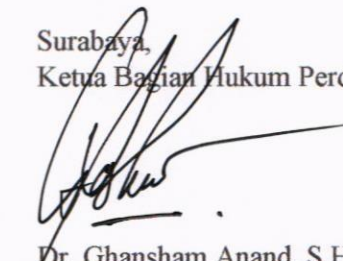 Surabaya,
Ketua Bagian Hukum Perd
Dr. Ghansham Anand, S.H